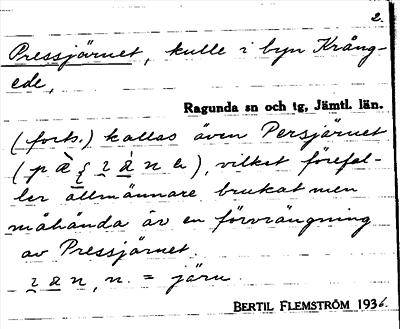 2.
Pressjärnet, kulle i byn Krång-
ede,
Ragunda sn och tg, Jämtl. län.
(forts.) kallas även Persjärnet
vilket förefal-
ler allmännare brukat men
måhända är en förvrängning
av Pressjärnet.
n. = järn.
BERTIL FLEMSTRÖM 1936.